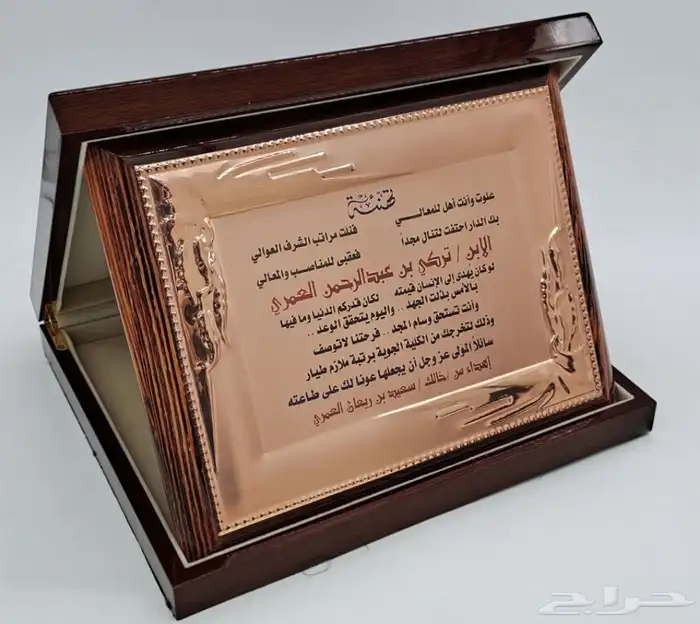 تهنئة
علوت وأنت أهل للمعالي فنلت مراتب الشرف العوالي
بك الدار احتفت لتنال مجداً فعقبى للمناصب والمعالي
الابن / تركي بن عبدالرحمن العمري
لو كان يُهدى إلى الإنسان قيمته لكان قدركم الدنيا وما فيها
بالأمس بذلت الجهد .. واليوم يتحقق الوعد ..
وأنت تستحق وسام المجد .. فرحتنا لاتوصف
وذلك لتخرجك من الكلية الجوية برتبة ملازم طيار
سائلاً المولى عز وجل أن يجعلها عونا لك على طاعته
إهداء من /خالك/ سعيد بن ريعان العمري
حراج